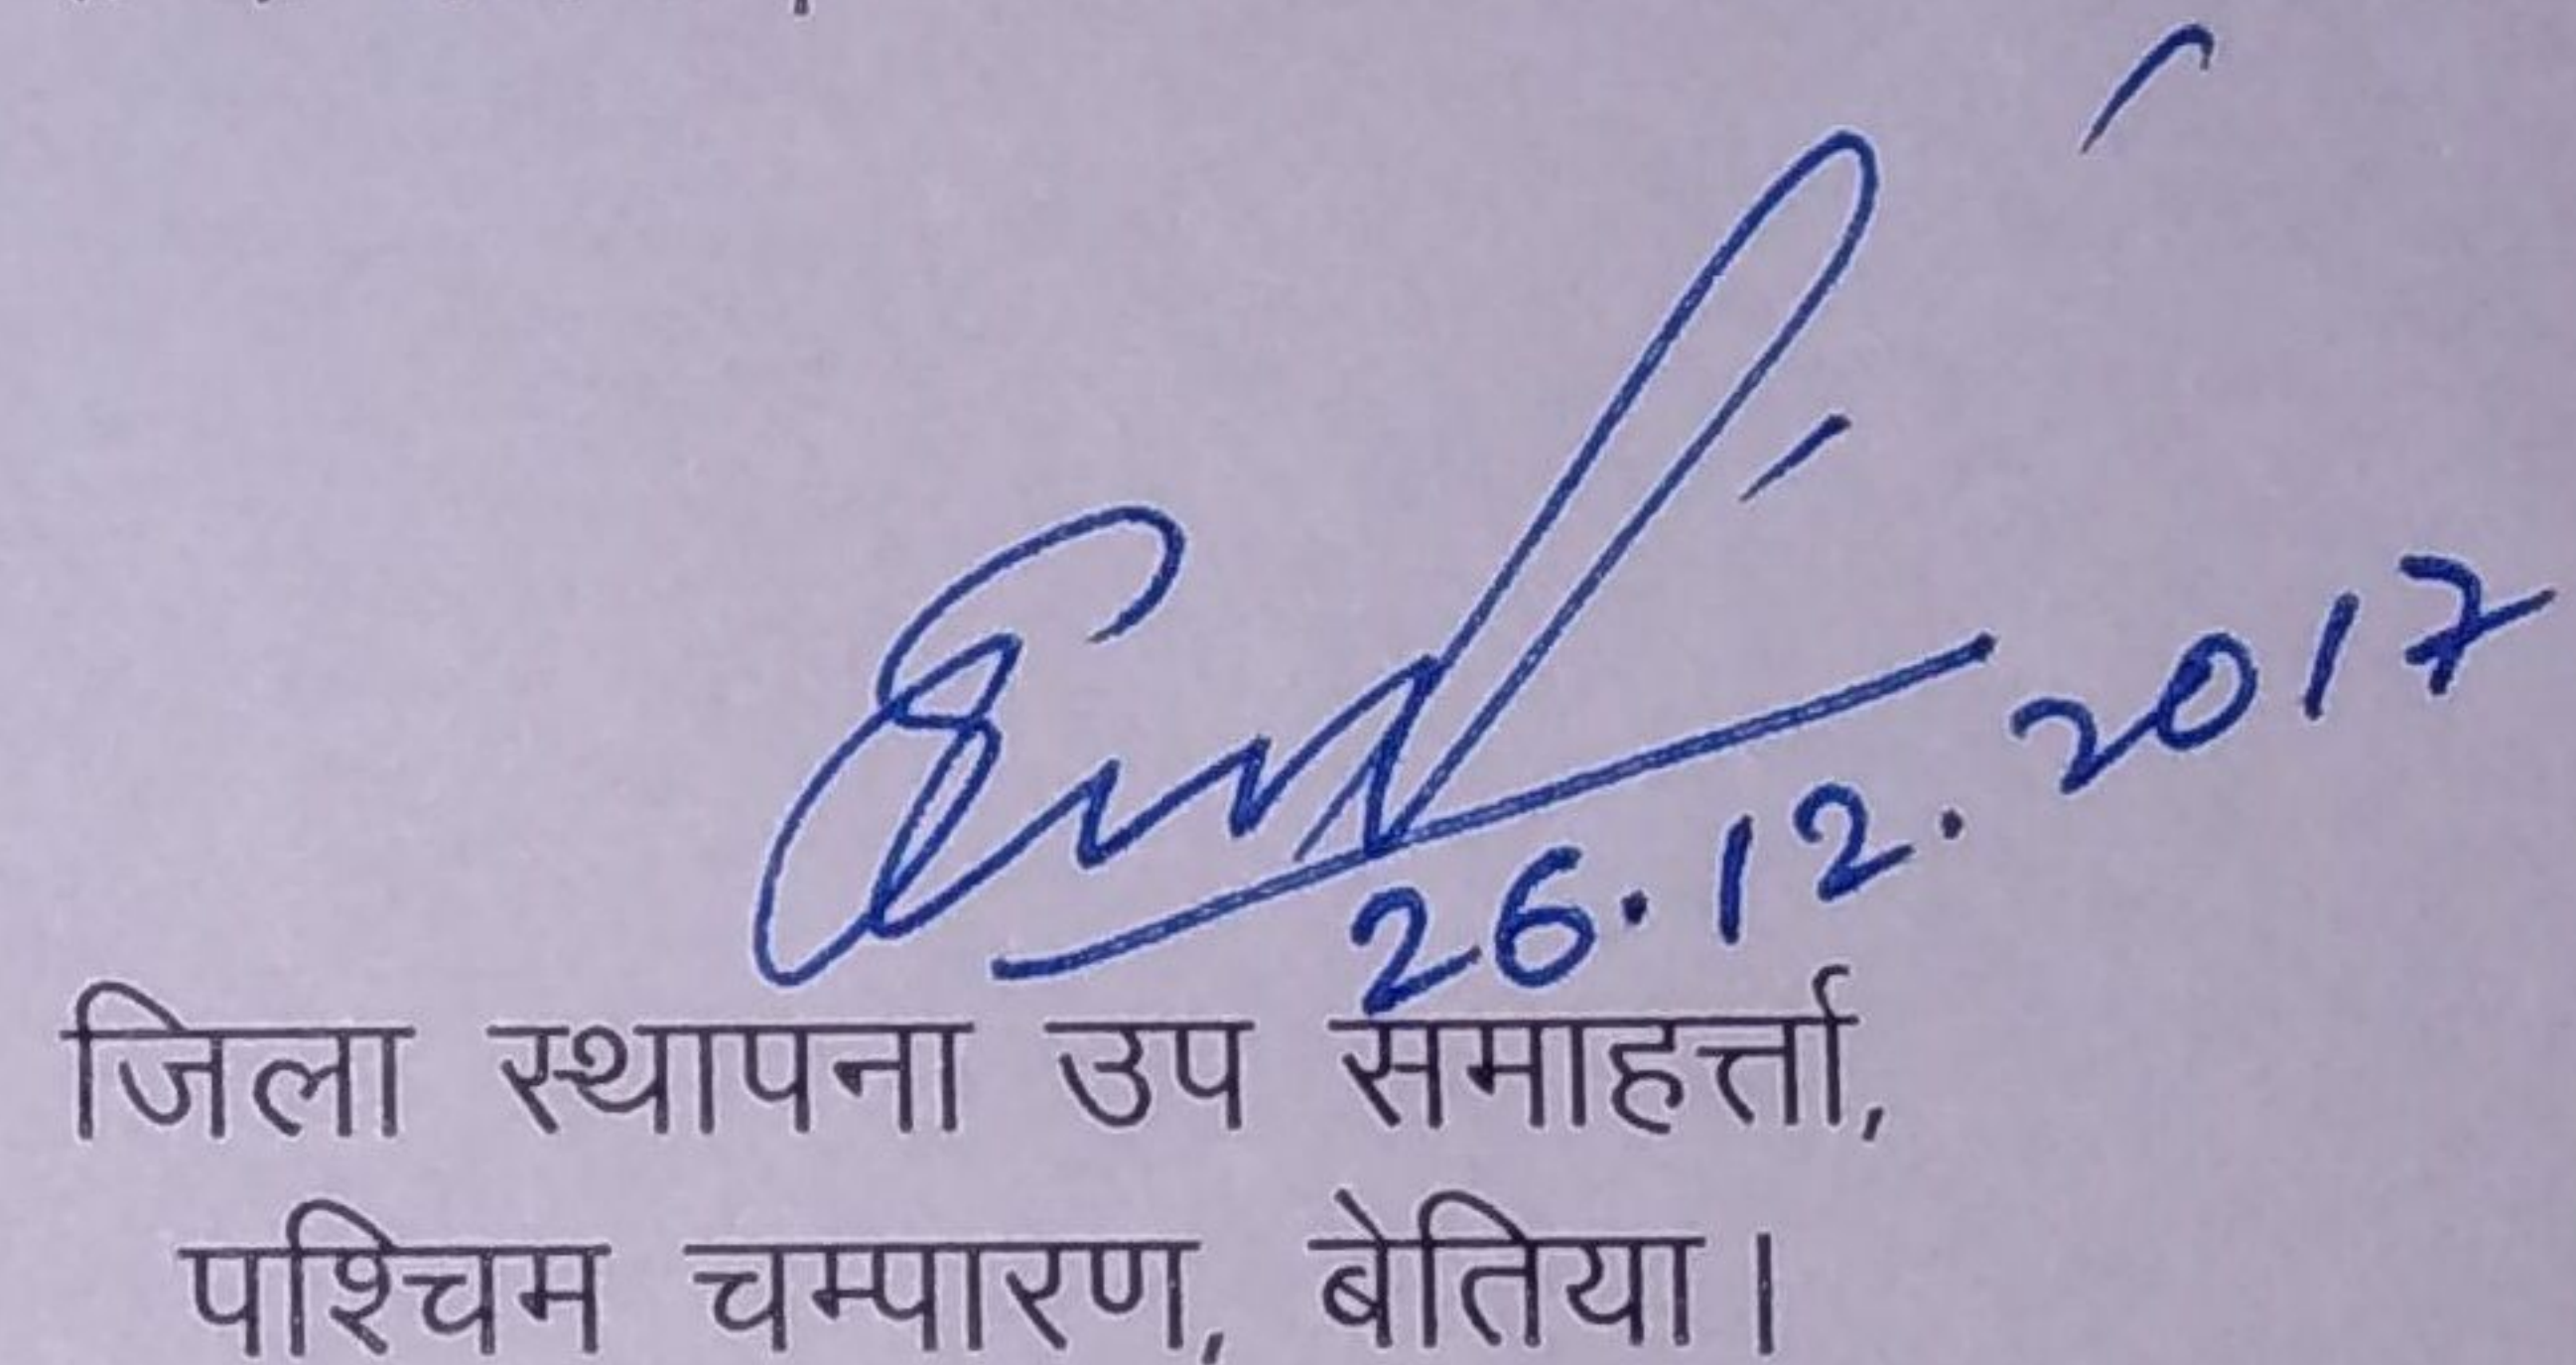 26.12.2017
जिला स्थापना उप समाहर्त्ता,
पश्चिम चम्पारण, बेतिया।